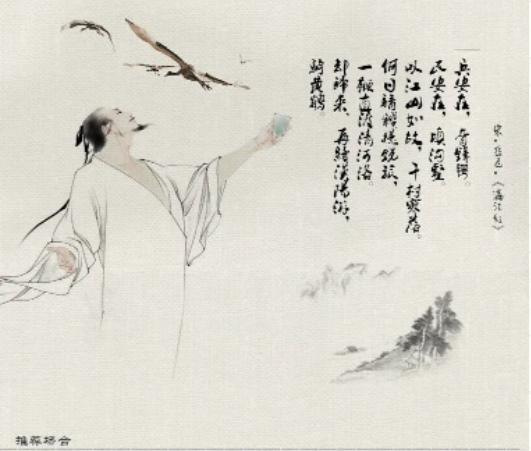 宋·岳飞·《满江红》
兵安在，膏锋锷。
民安在，填沟壑。
叹江山如故，千村寥落。
何日请缨提锐旅，
一鞭直渡清河洛。
却归来、再续汉阳游，
骑黄鹤。
推荐场合